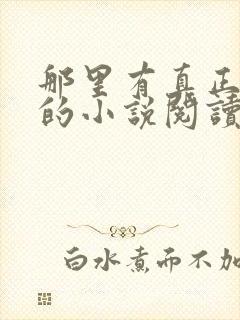 那里有真正
的小說閱讀
白水煮而不加